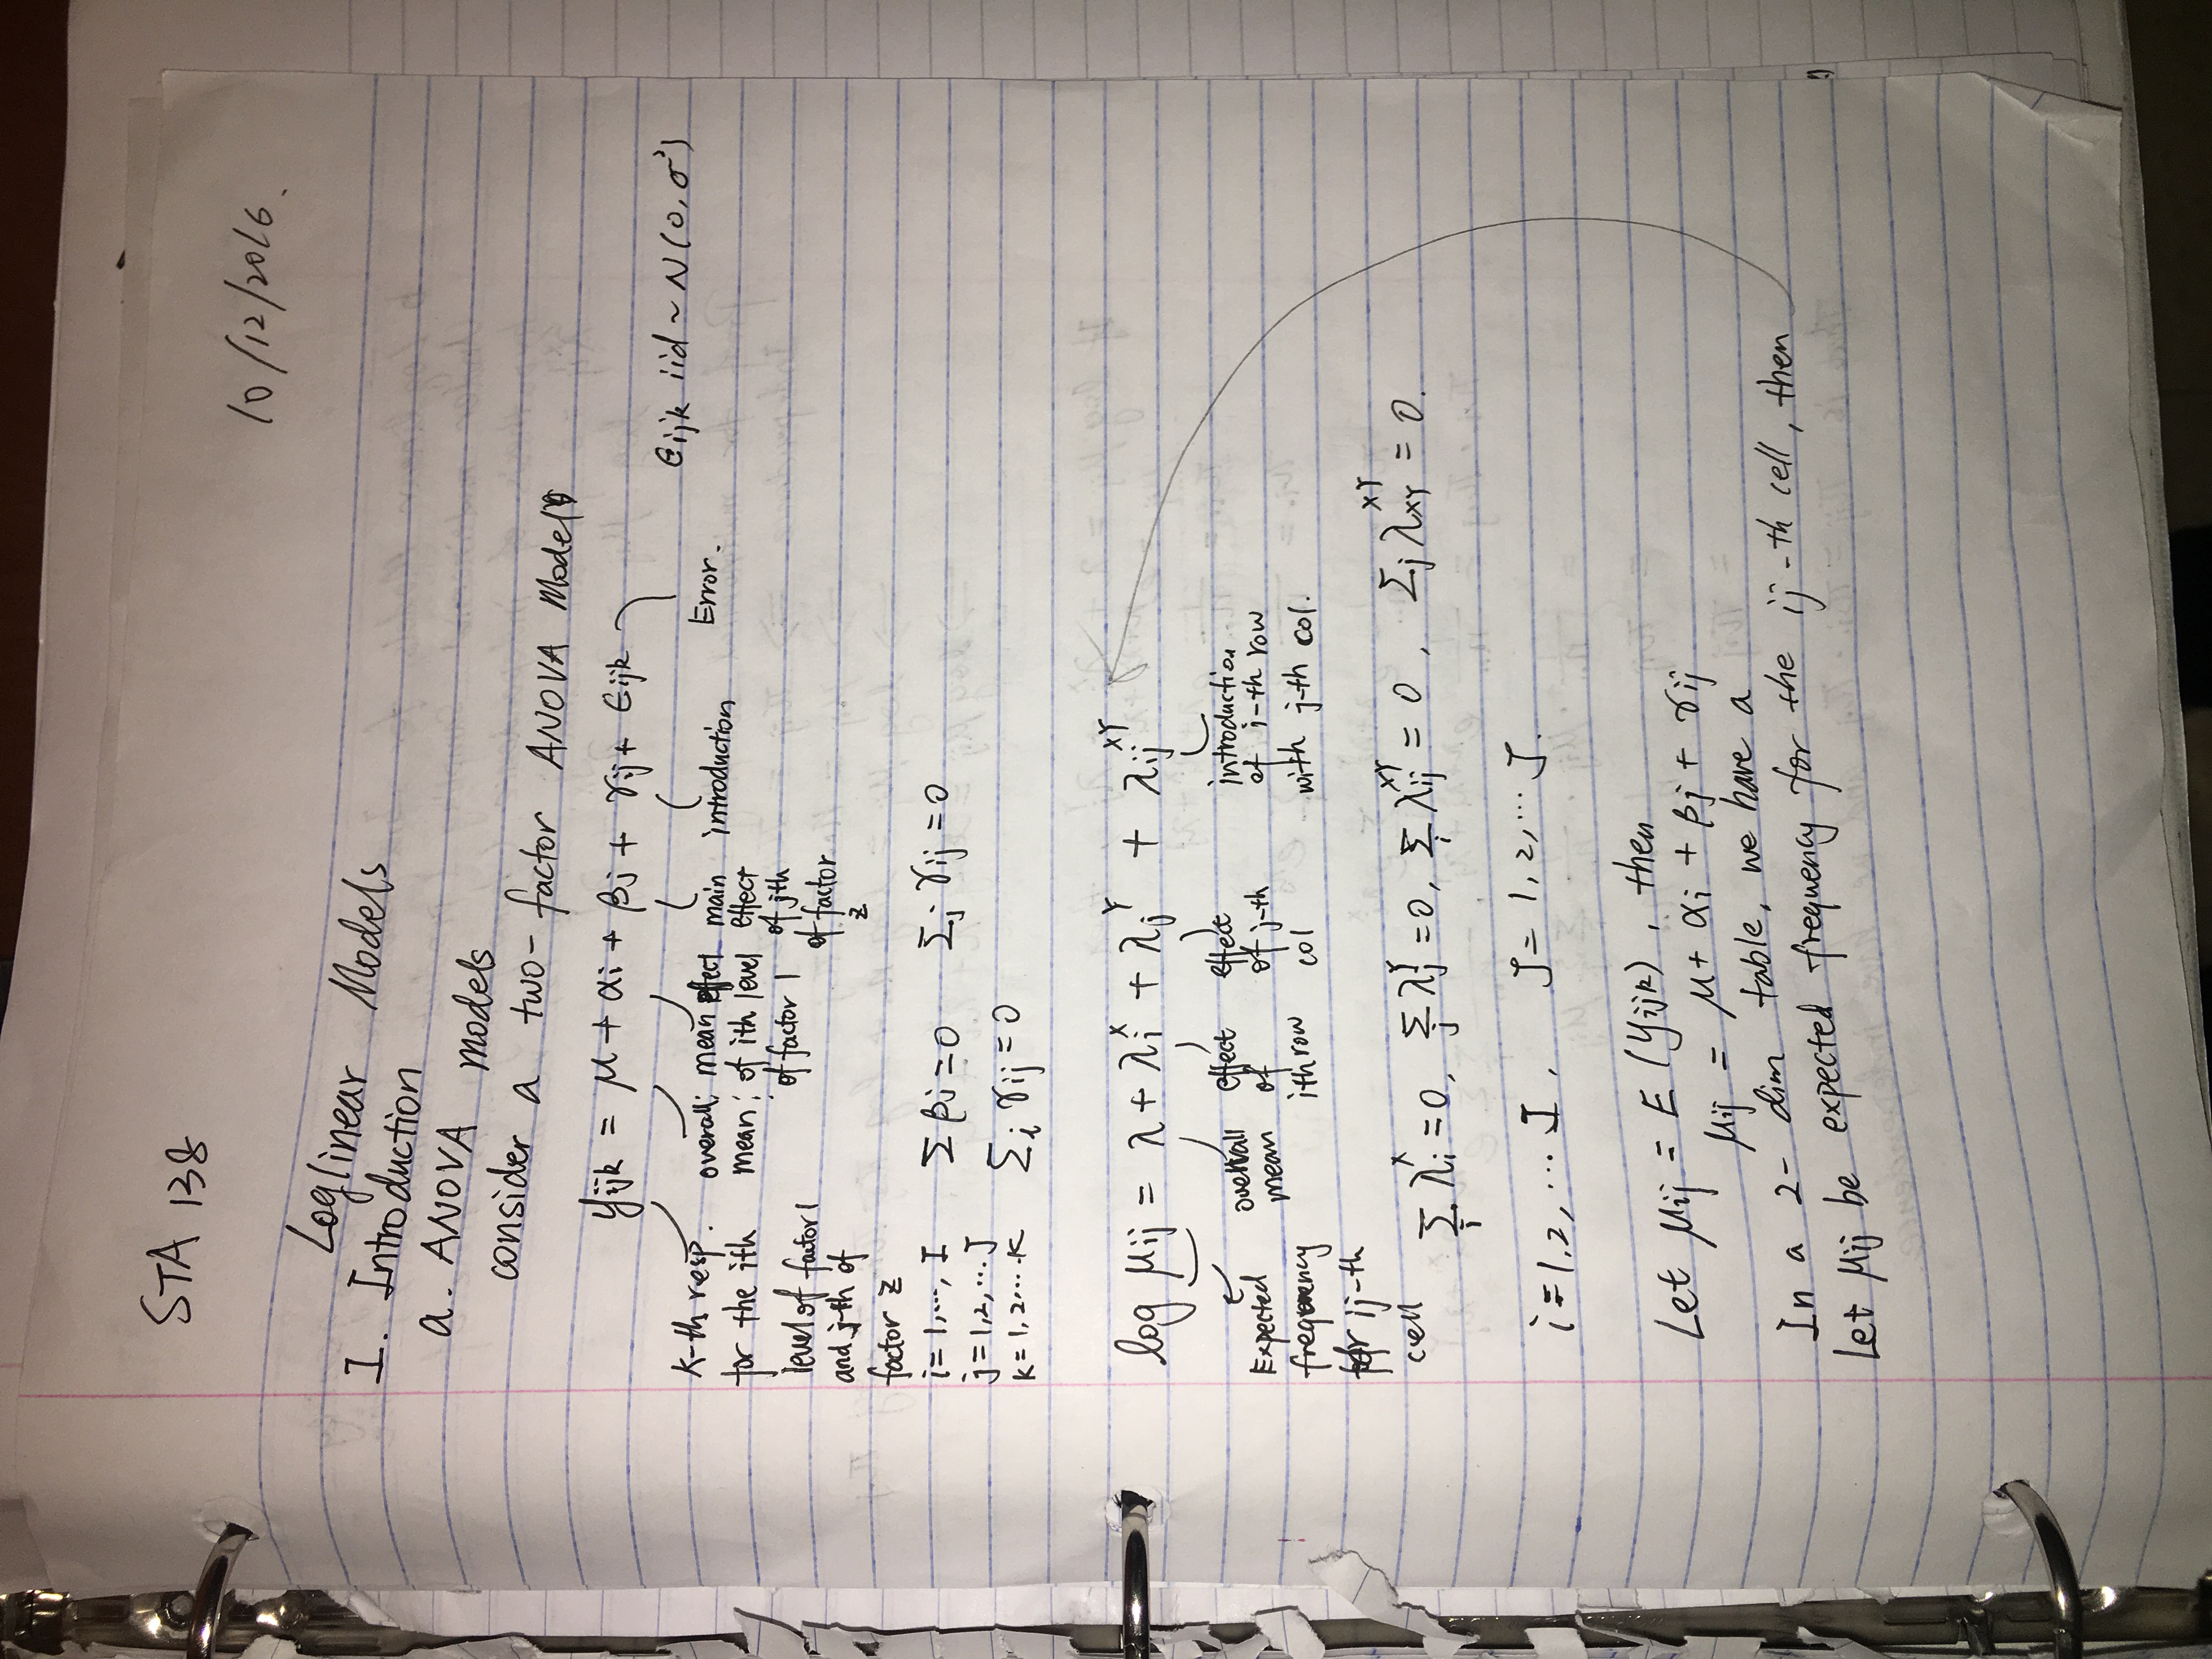 STA 138
10/12/2016.
Loglinear Models
I. Introduction
a. ANOVA models
consider a two-factor ANOVA Model
yijk = μ + αi + βj + γij + εijk
εijk iid ~ N(0, σ²)
k-th resp.
for the ith
level of factor 1
and j-th of
factor 2
overall
mean
mean effect
of ith level
of factor 1
main
effect
of jth
of factor
2
introduction
Error.
i = 1,..., I
j = 1,2,... J
k = 1,2.... K
Σ βj = 0 Σj γij = 0
Σi γij = 0
log μij = λ + λi^X + λj^Y + λij^XY
Expected
frequency
for ij-th
cell
overall
mean
effect
of
ith row
effect
of j-th
col
introduction
of i-th row
with j-th col.
Σi λi^X = 0, Σj λj^Y = 0, Σi λij^XY = 0, Σj λXY^XY = 0.
i = 1,2,... I, J = 1,2,... J.
Let μij = E(yijk), then
μij = μ + αi + βj + γij
In a 2-dim table, we have a
Let μij be expected frequency for the ij-th cell, then